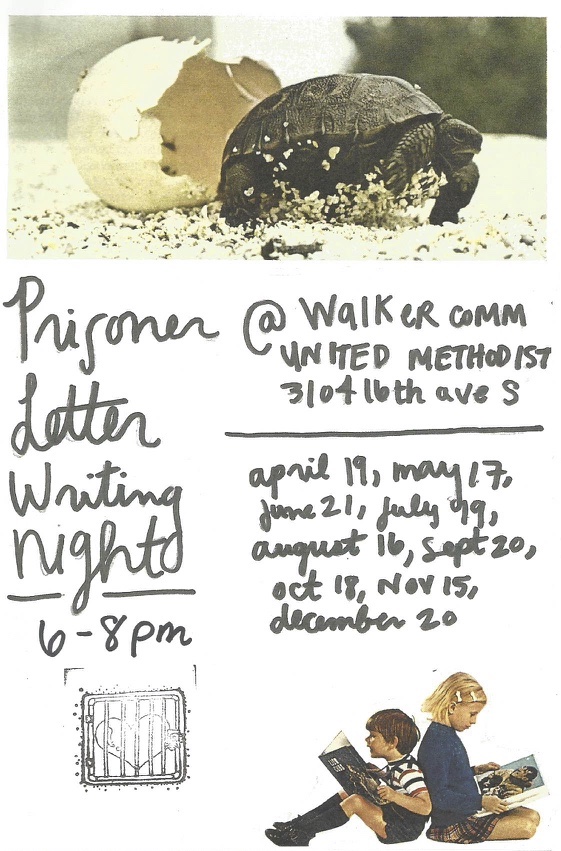 Prisoner
Letter
Writing
Nights
6-8pm
@ Walker comm
UNITED METHODIST
3104 16th ave S
april 19, may 17,
june 21, july 19,
august 16, sept 20,
oct 18, Nov 15,
december 20